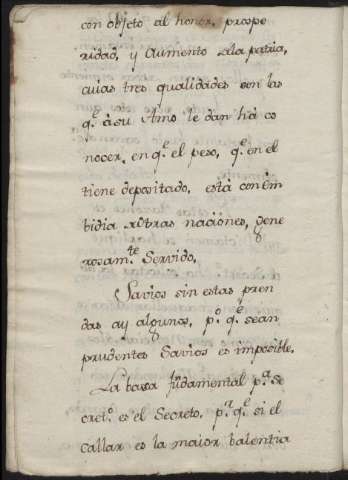 con objeto al honor, prospe
ridad, y aumento dela patria,
cuias tres qualidades son las
q.e à su Amo le dan hà co
nocer, en q.e el peso, q.e en el
tiene depositado, està con èm
bidia d otras naciònes, gene
rosam.te Servido,
Savios sin estas pren
das ay algunos, p.o q.e sean
prudentes Savios es imposible,
La bassa fundamental p.a se
cret.o es el Secreto, p.r q.e si el
callar es la maior balentia